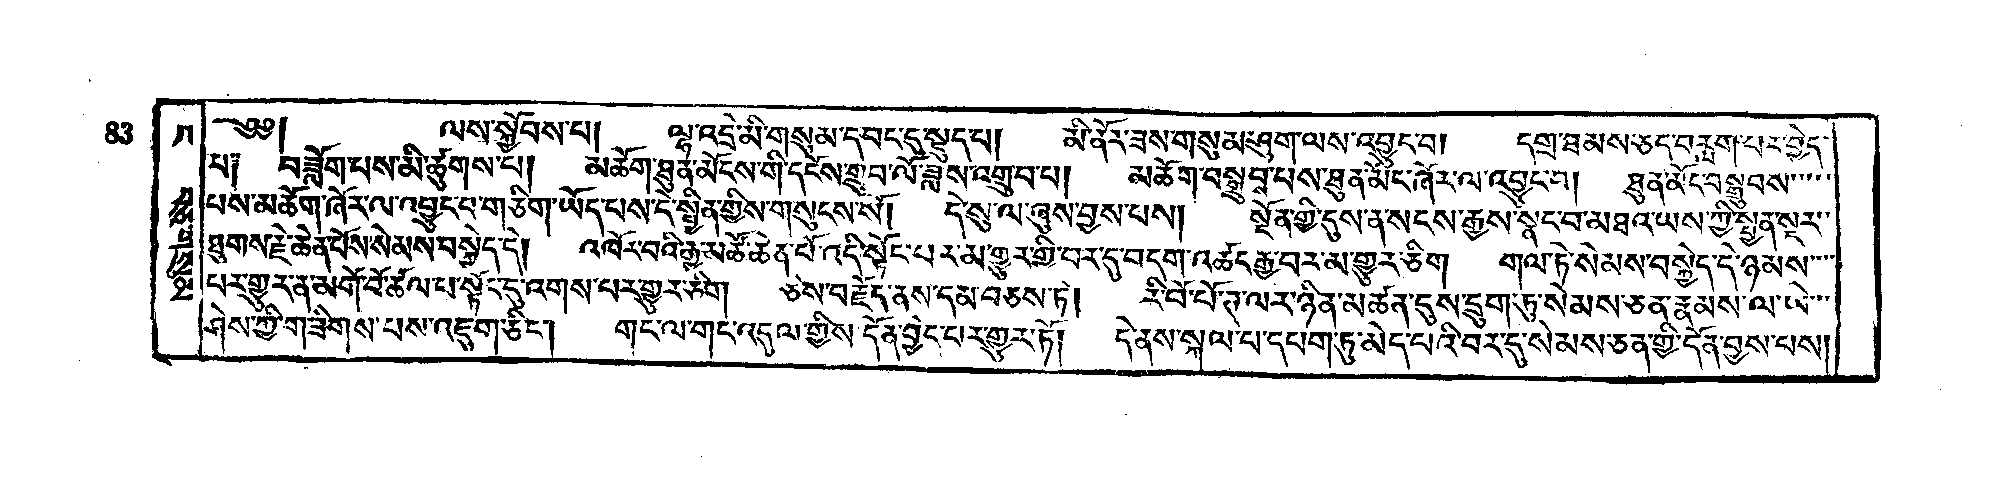 83
ཀ
༄༅། ལས་སྐྱོབས་པ། ལྷ་འདྲེ་མི་གསུམ་དབང་དུ་སྡུད་པ། མི་ནོར་ཟས་གསུམ་ཕྱུག་ལས་འབྱུང་བ། དགྲ་ཐམས་ཅད་བརླག་པར་བྱེད་
པ། བཟློག་པས་མི་ཚུགས་པ། མཆོག་ཐུན་མོངས་གི་དངོས་གྲུབ་ལོ་ཟླས་འགྲུབ་པ། མཆོག་བསྒྲུབ་པས་ཐུན་མོང་ཞོར་ལ་འབྱུང་བ། ཐུན་མོང་བསྒྲུབས་
པས་མཆོག་ཞོར་ལ་འབྱུང་པ་གཅིག་ཡོད་པས་དེ་སྦྱིན་གྱིས་གསུངས་སོ། དེ་སུ་ལ་ཞུས་བྱས་པས། སྔོན་གྱི་དུས་ན་སངས་རྒྱས་སྣང་བ་མཐའ་ཡས་ཀྱི་སྤྱན་སྔར་
ཐུགས་རྗེ་ཆེན་པོས་སེམས་བསྐྱེད་དེ། འཁོར་བའི་རྒྱ་མཚོ་ཆེན་པོ་འདི་སྟོང་པར་མ་གྱུར་གྱི་བར་དུ་བདག་འཚང་རྒྱ་བར་མ་གྱུར་ཅིག གལ་ཏེ་སེམས་བསྐྱེད་དེ་ཉམས་
པར་གྱུར་ན་མགོ་བོ་ཚལ་པ་སྟོང་དུ་འགས་པར་གྱུར་ཅིག ཅེས་བརྗོད་ནས་དམ་བཅས་ཏེ། རི་བོ་པོ་ཏ་ལར་ཉིན་མཚན་དུས་དྲུག་ཏུ་སེམས་ཅན་རྣམས་ལ་ཡེ་
ཤེས་ཀྱི་གཟིགས་པས་འཇུག་ཅིང་། གང་ལ་གང་འདུལ་གྱིས་དོན་བྱེད་པར་གྱུར་ཏོ། དེ་ནས་སྐལ་པ་དཔག་ཏུ་མེད་པའི་བར་དུ་སེམས་ཅན་གྱི་དོན་བྱས་པས།